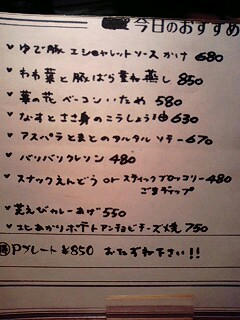 今日のおすすめ
ゆで豚 エシャレットソースかけ 680
わわ菜と豚ばら重ね蒸し 850
菜の花ベーコンいため 580
なすとささ身のこしょう油 630
アスパラとまとのタルタルソテー 670
バリバリクレソン 480
スナックえんどう or スティックブロッコリー 480
ごまディップ
芝えびカレーあげ 550
北あかりポテトアンチョビチーズ焼 750
Pプレート ¥850 おたずね下さい!!